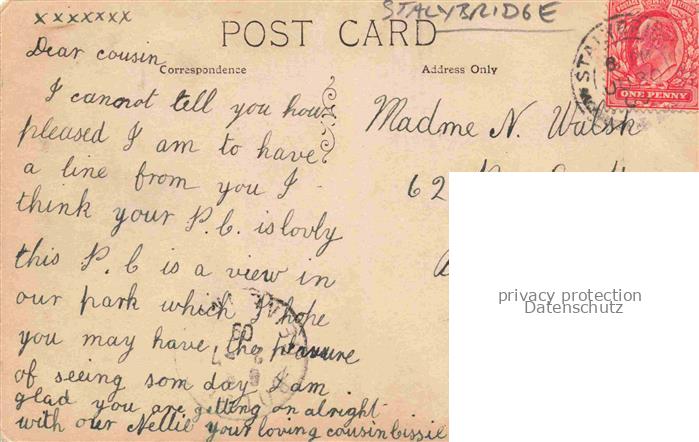 xxxxxxx
STALYBRIDGE
POST CARD
Dear cousin
Correspondence
I cannot tell you how
pleased I am to have
a line from you I
think your P.C. is lovly
this P.C is a view in
our park which I hope
you may have, the
of seeing som day I am
glad you are getting on alright
with our Nellie your loving cousin Cissie
Address Only
Madme N. Walsh
62
ONE PENNY
privacy protection
Datenschutz